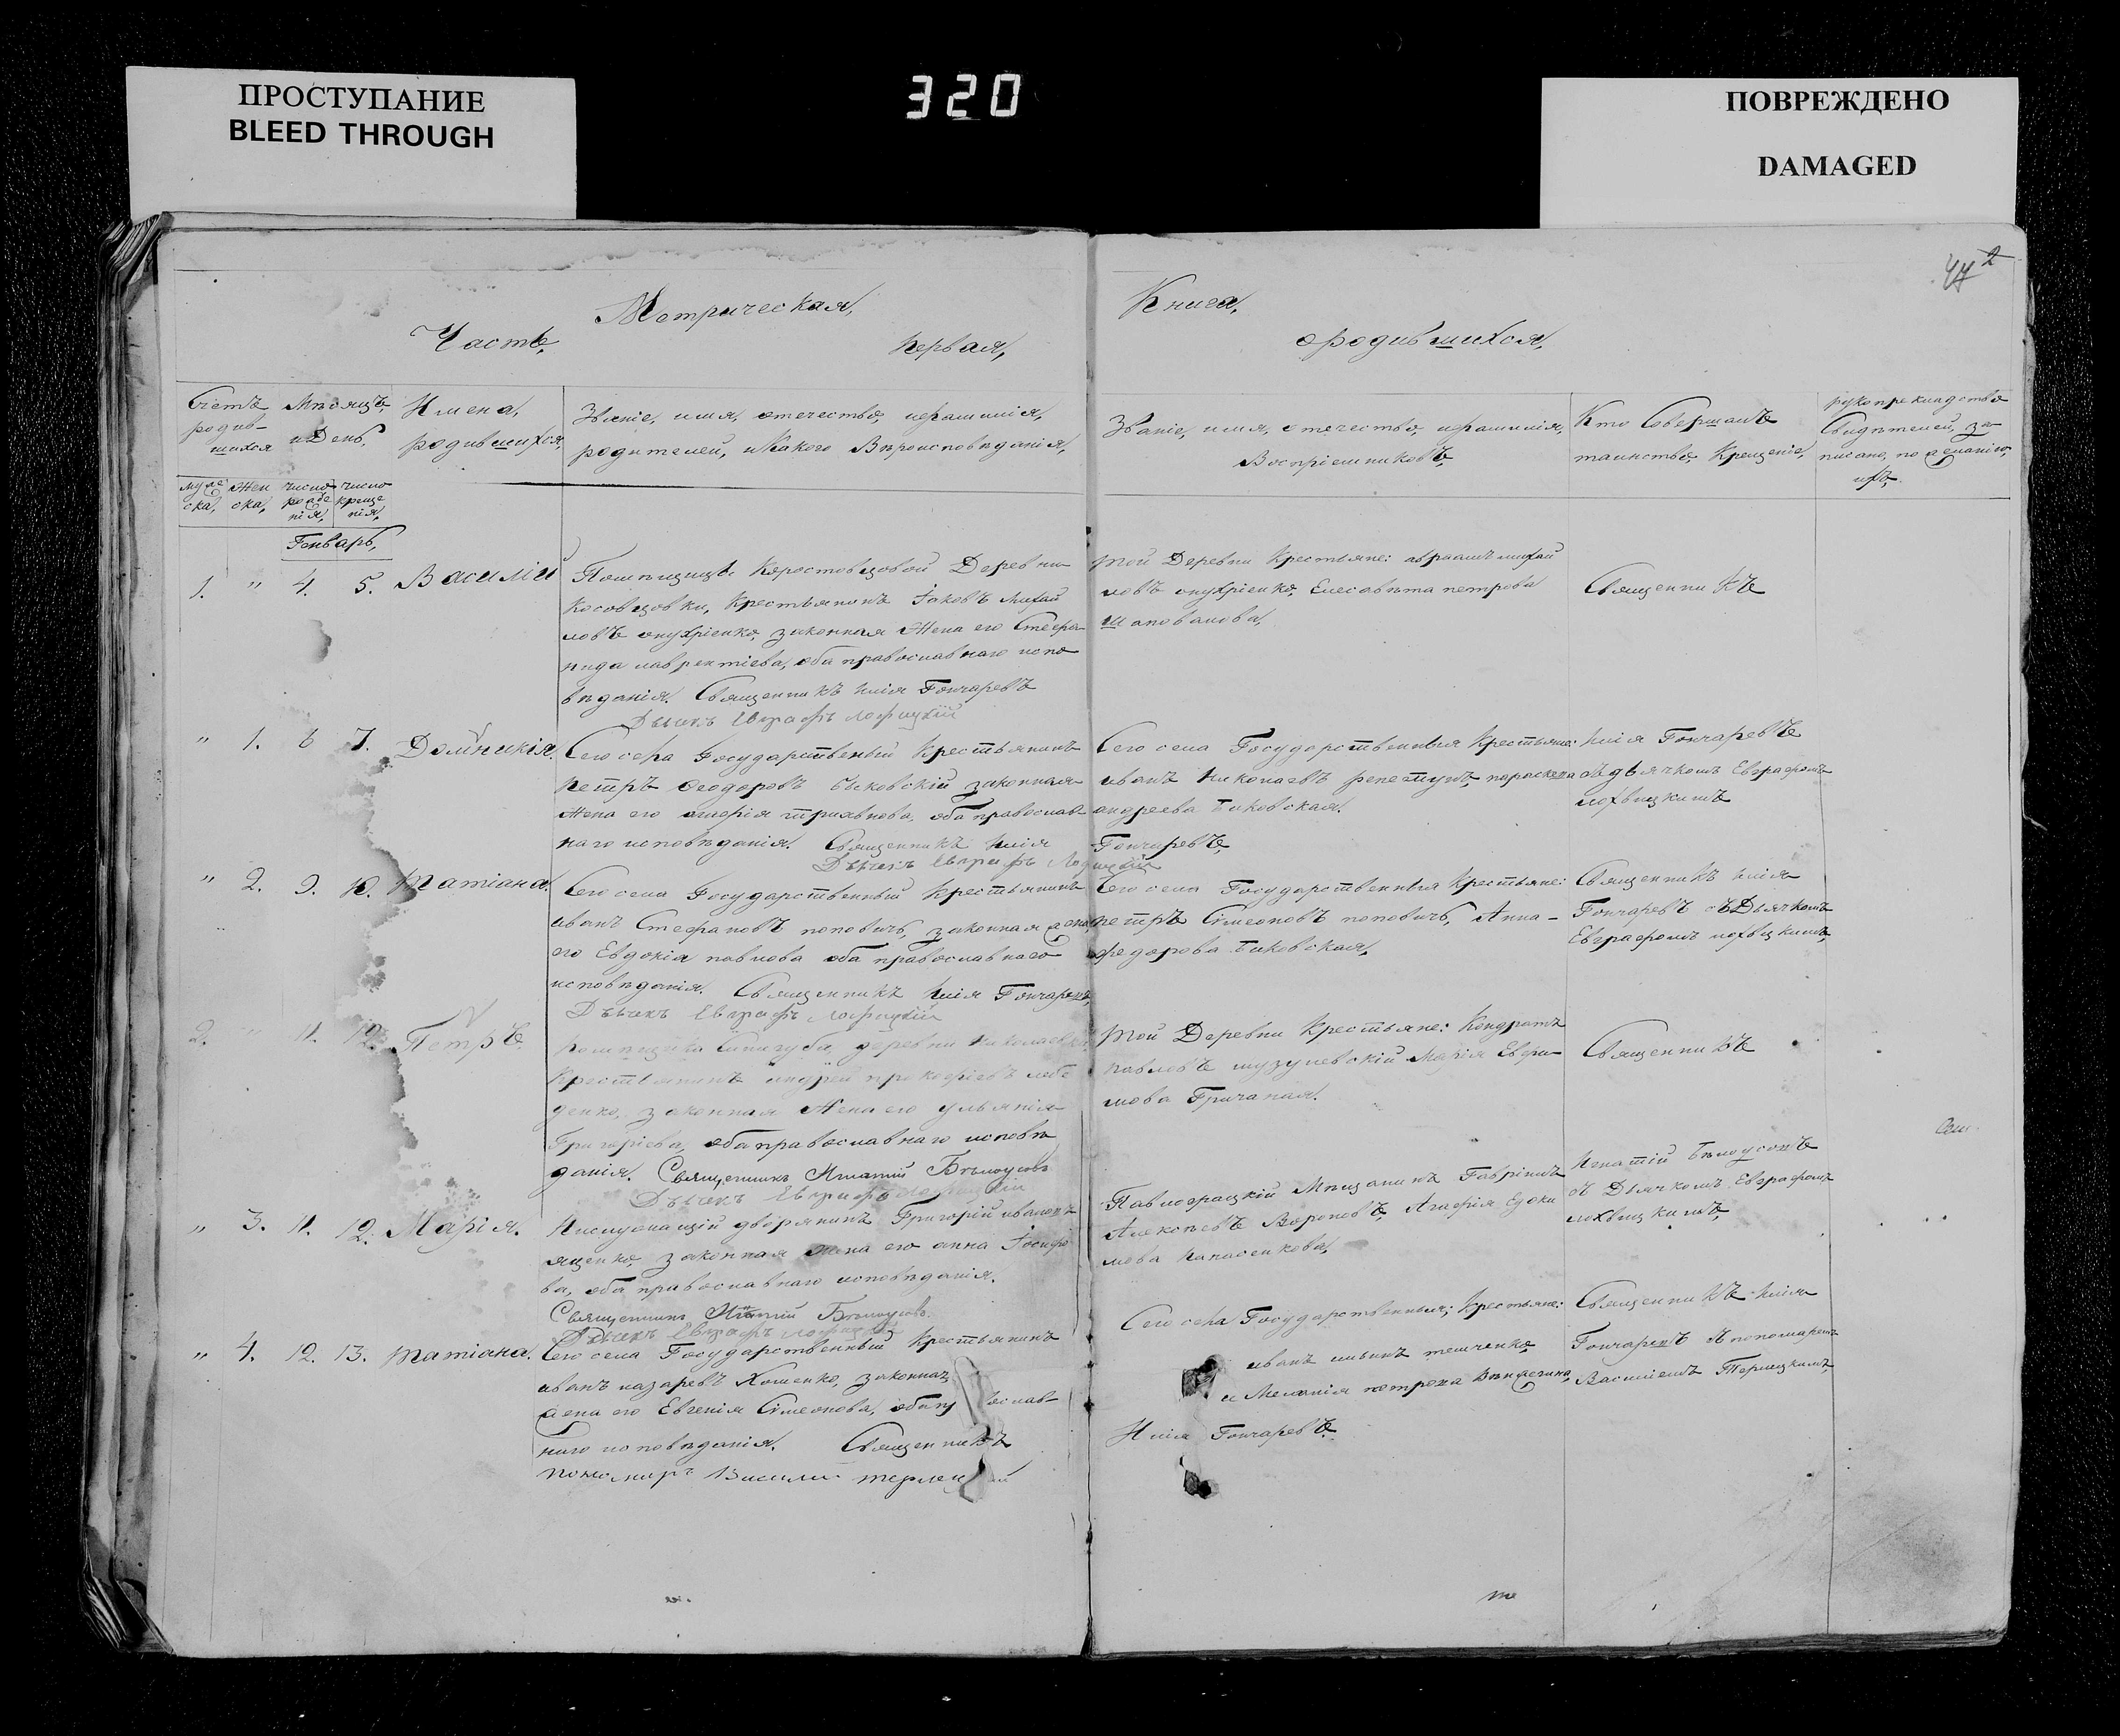 ПРОСТУПАНИЕ
BLEED THROUGH
320
ПОВРЕЖДЕНО
DAMAGED
2
Метрическая,
Часть, первая,
Книга,
о родившихся,
Счетъ родив-шихся
Мѣсяцъ, и День,
Имена, родившихся,
Званіе, имя, отечество, и фамилія,
родителей, и какого Вѣроисповѣданія,
Званіе, имя, отечество, и фамилія,
Воспріемниковъ,
Кто Совершалъ
таинство, Крещенія,
рукоприкладство
Свидѣтелей, за-
писано, по желанію,
ихъ,
муже ска,
жен ска,
число рожде нія,
число креще нія,
Генварь,
1. " 4. 5. Василій
Помѣщицы Коростовцовой Деревни
Косовцовки, Крестьянинъ Іаковъ Михай
ловъ онуфріенко, законная Жена его Стефа
нида лаврентіева, оба православнаго испо
вѣданія. Священникъ Илія Гончаревъ
Дьячекъ Евграфъ
Той Деревни Крестьяне: авраамъ михай
ловъ онуфріенко, Елисавѣта петрова
шаповалова,
Священникъ
" 1. 6 7. Домникія.
Сего села Государственный Крестьянинъ
Петръ Феодоровъ быковскій законная
Жена его оба православ-
наго исповѣданія. Священникъ Илія Гончаревъ,
Дьячекъ Евграфъ
Сего села Государственныя Крестьяне:
иванъ николаевъ параскева
андреева быковская.
Илія Гончаревъ
съ дьячкомъ Евграфомъ
лохвицкимъ
" 2. 9. 10. Татіана.
Сего села Государственный Крестьянинъ
иванъ Стефановъ поповичь, законная жена
его Евдокія павлова оба православнаго
исповѣданія. Священникъ Илія Гончаревъ,
Дьячекъ Евграфъ
Сего села Государственныя Крестьяне:
петръ Симеоновъ поповичь, Анна-
федорова быковская,
Священникъ Илія
Гончаревъ съ Дьячкомъ
Евграфомъ лохвицкимъ,
2. " 11. 12. Петръ.
деревни николаевки
Крестьянинъ андрей прокофіевъ лебе
денко, законная Жена его ульянія
Григоріева, оба православнаго исповѣ
данія. Священникъ Игнатій Бѣлоусовъ
Дьячекъ Евграфъ
Той Деревни Крестьяне: Кондратъ
павловъ Марія Ефи
мова
Священникъ
" 3. 11. 12. Марія.
Неслужащій дворянинъ Григорій ивановъ
яценко, законная жена его анна Іосифо
ва, оба православнаго исповѣданія.
Священникъ Игнатій Бѣлоусовъ.
Дьячекъ Евграфъ
Павлоградскій Мѣщанинъ Гавріилъ
Алексѣевъ Вороновъ, Агафія Евфи
мова
Игнатій Бѣлоусовъ
съ Дьячкомъ Евграфомъ
лохвицкимъ,
" 4. 12. 13. татіана.
Сего села Государственный Крестьянинъ
иванъ назаревъ Хоменко, законная
жена его Евгенія Симеонова, оба пр ослав-
наго исповѣданія. Священникъ
пономарь Василий
Сего села Государственныя, Крестьяне:
иванъ
и Меланія петрова
Илія Гончаревъ.
Священникъ Илія
Гончаревъ пономаремъ
Василіемъ